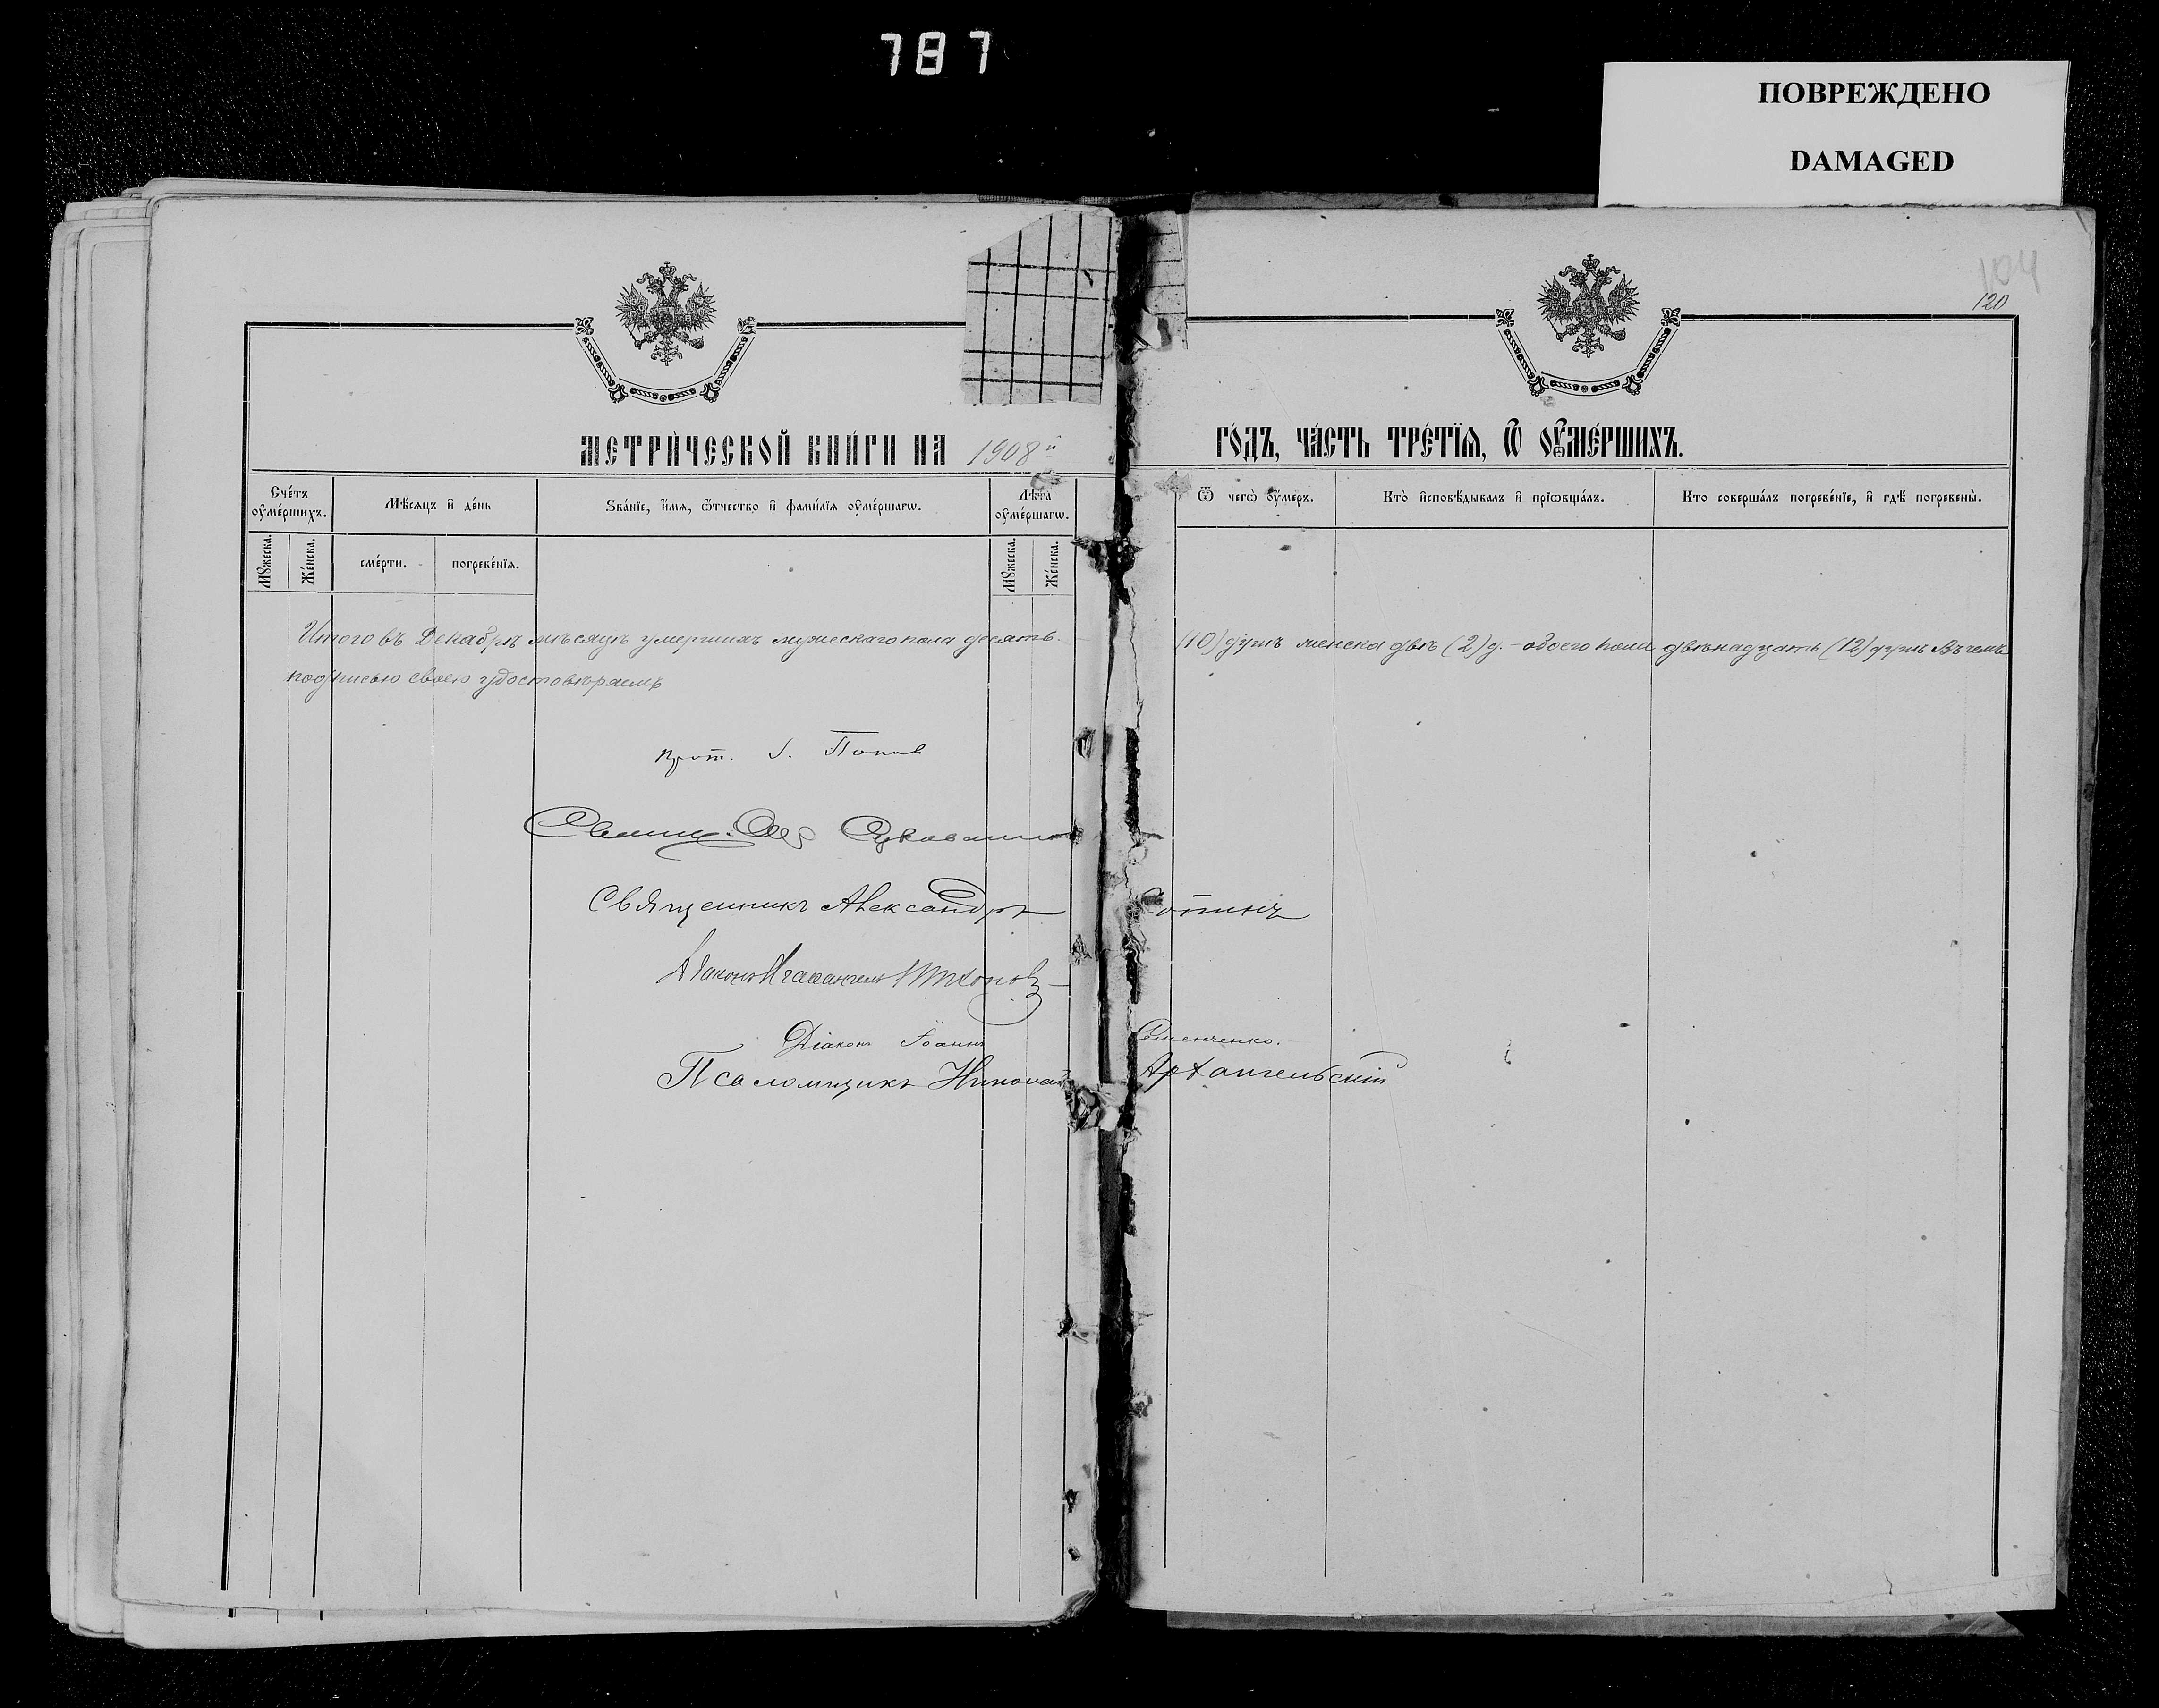 787
ПОВРЕЖДЕНО
DAMAGED
104
120
МЕТРИ́ЧЕСКОЙ КНИ́ГИ НА 1908й ГО́ДЪ, ЧА́СТЬ ТРЕ́ТЇѦ, Ѿ ОУ҆МЕ́РШИХЪ.
Сче́тъ оу҆ме́ршихъ.
Мѣ́сѧцъ и҆ де́нь
Зва́нїе, и҆́мѧ, ѻ҆́тчество и҆ фами́лїѧ оу҆ме́ршагѡ.
Лѣ́та оу҆ме́ршагѡ.
Ѿ чегѡ̀ оу҆́меръ.
Кто̀ и҆сповѣ́дывалъ и҆ прїѡбща́лъ.
Кто совершáлъ погребе́нїе, и҆ гдѣ̀ погребены̀.
Мꙋ́жеска.
Же́нска.
сме́рти.
погребе́нїѧ.
Мꙋ́жеска.
Же́нска.
Итого въ Декабрѣ мѣсяцѣ умершихъ мужескаго пола десять (10) душъ - женска двѣ (2) д. - обоего пола двѣнадцать (12) душъ Въ чемъ
подписью своею удостовѣряемъ
Прот. І. Поповъ
Свящ.
Священникъ Александръ
Діаконъ
Діаконъ Іоаннъ Семенченко.
Псаломщикъ Николай Архангельскій